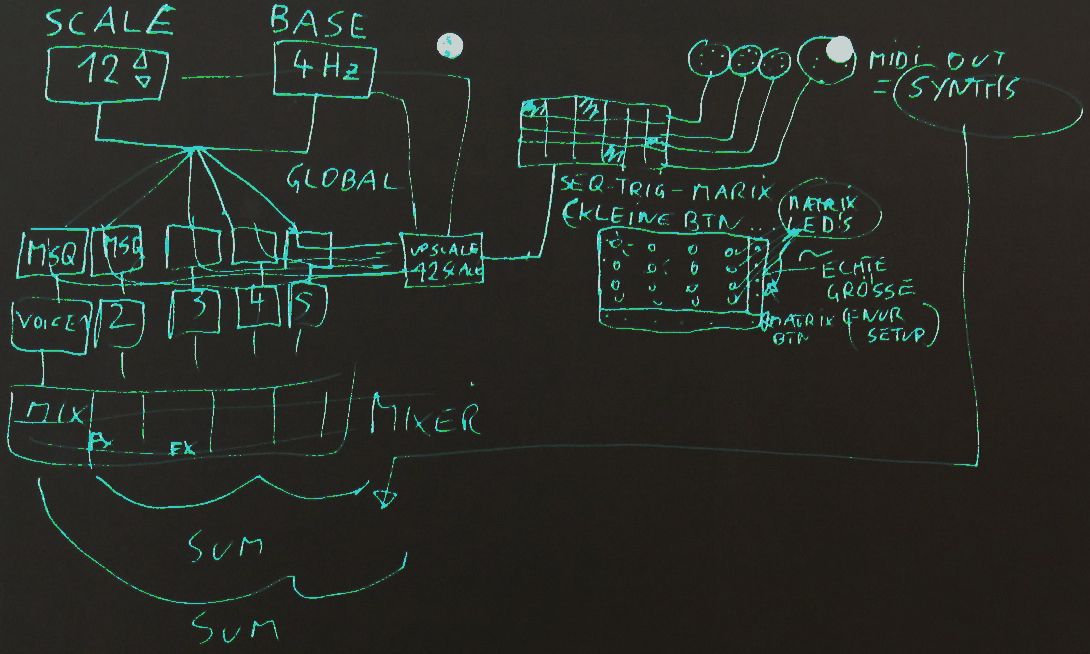 SCALE
BASE
12
4 Hz
MIDI OUT
= SYNTHS
GLOBAL
SEQ-TRIG-MARIX
(KLEINE BTN...
MATRIX
LED'S
MSQ
MSQ
UPSCALE
42 SCALE
ECHTE
GRÖSSE
VOICE 1
2
3
4
5
MATRIX
BTN
(= NUR
SETUP)
MIX
FX
FX
MIXER
SUM
SUM